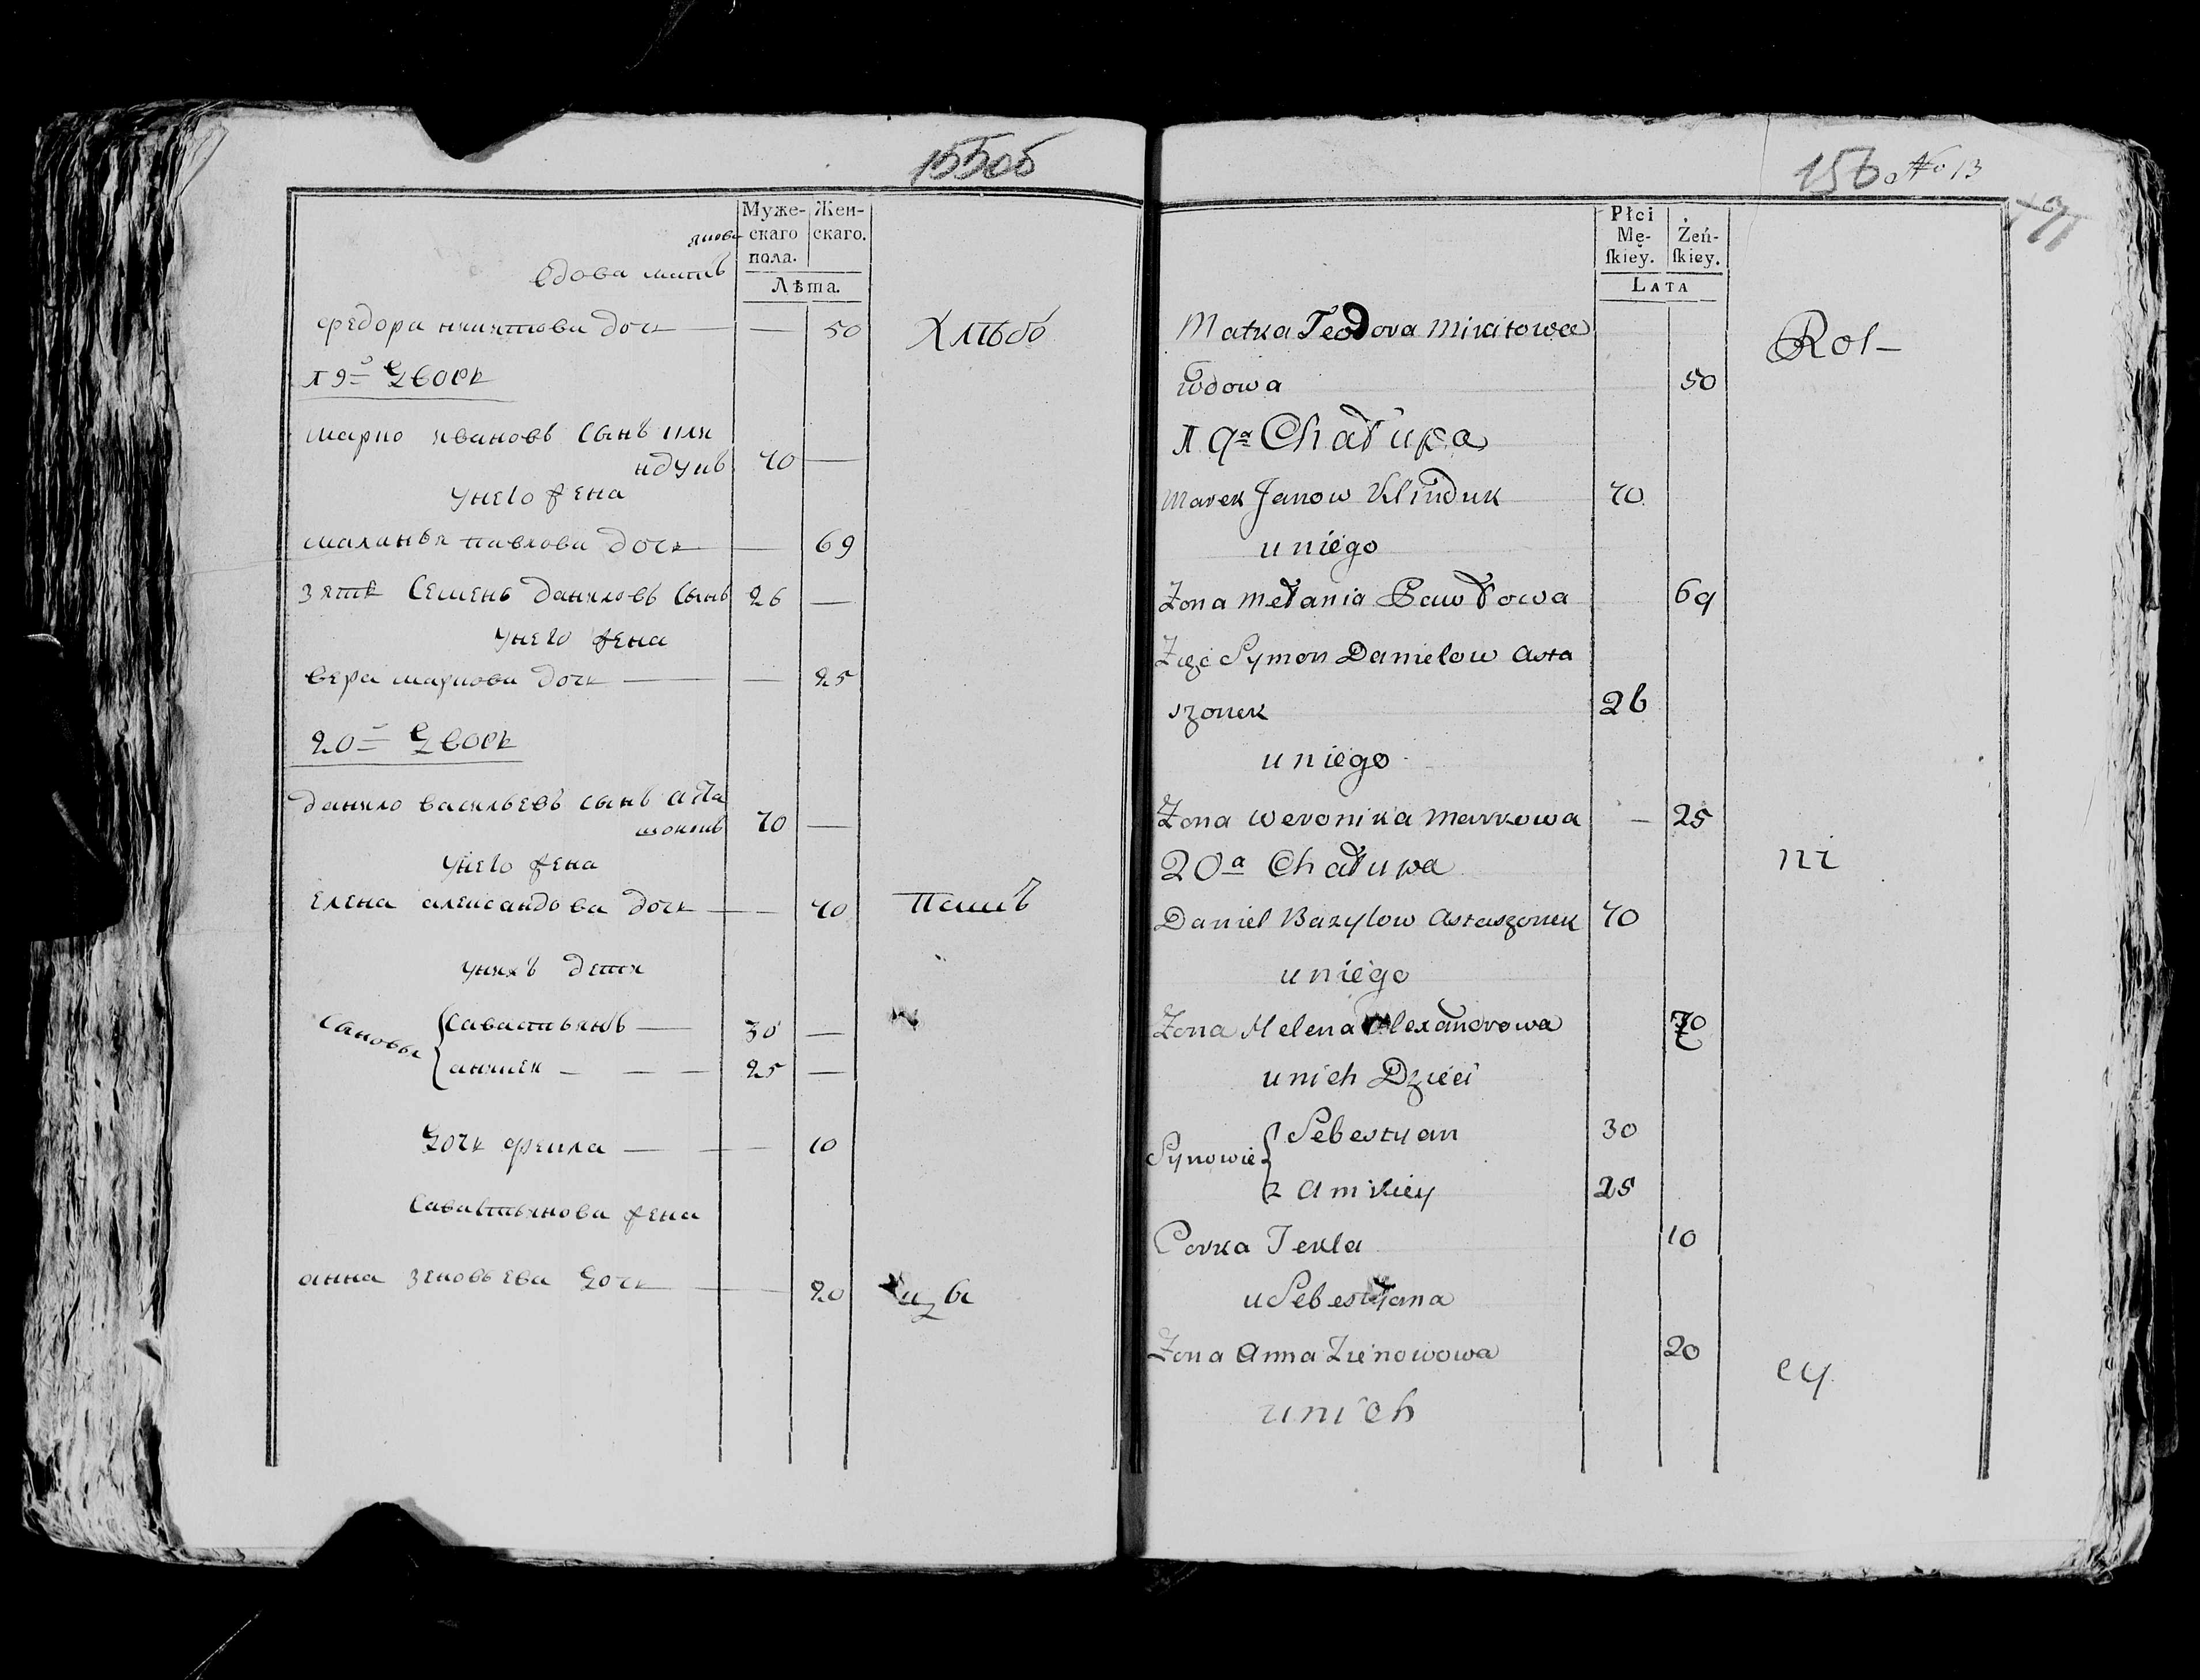 155об
Муже-
скаго
пола.
Жен-
скаго.
Лѣта.
вдова мать
федора никитова доч — — 50
19й Дворъ
марко ивановъ сынъ кли
ндукъ 70 —
унего жена
маланья павлова доч — — 69
зять семенъ даниловъ сынъ 26 —
унего жена
вера маркова доч — — 25
20й Дворъ
данило васильевъ сынъ аста
шонокъ 70 —
унего жена
елена александрова доч — — 70
унихъ дети
сановы
савастьянъ — 30 —
аникей — — — 25 —
Дочь фекла — — 10
савастьянова жена
анна зеновьева Доч — — 20
Хлѣбо
паш
цы
156 No 13
Płci
Mę-
ſkiey.
Żeń-
ſkiey.
LATA
Matka Teodora Mikitowa
wdowa 50
19a Chałupa
Marek Janow Klinduk 70
u niego
Zona Mełania Pawłowa 69
Zięć Symon Danielow Asta
szonek 26
u niego
Zona Weronika Markowa — 25
20a Chałupa
Daniel Bazylow Astaszonek 70
u niego
Zona Helena Alexandrowa 70
u nich Dzieci
Synowie
Sebestyan 30
2 Amikiey 25
Corka Tekla 10
u Sebestyana
Zona Anna Zienowowa 20
u nich
Rol-
ni
cy